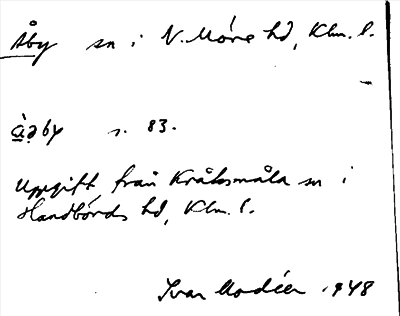 Åby sn i N. Möre hd, Klm. l.
åby s. 83.
Uppgift från Kråksmåla sn i
Handbörds hd, Klm. l.
Ivar Modéer 1948